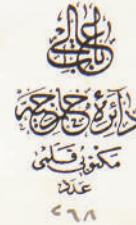 باب عالی
دائرهٔ خارجیه
مکتوبی قلمی
عدد
٢٦٨